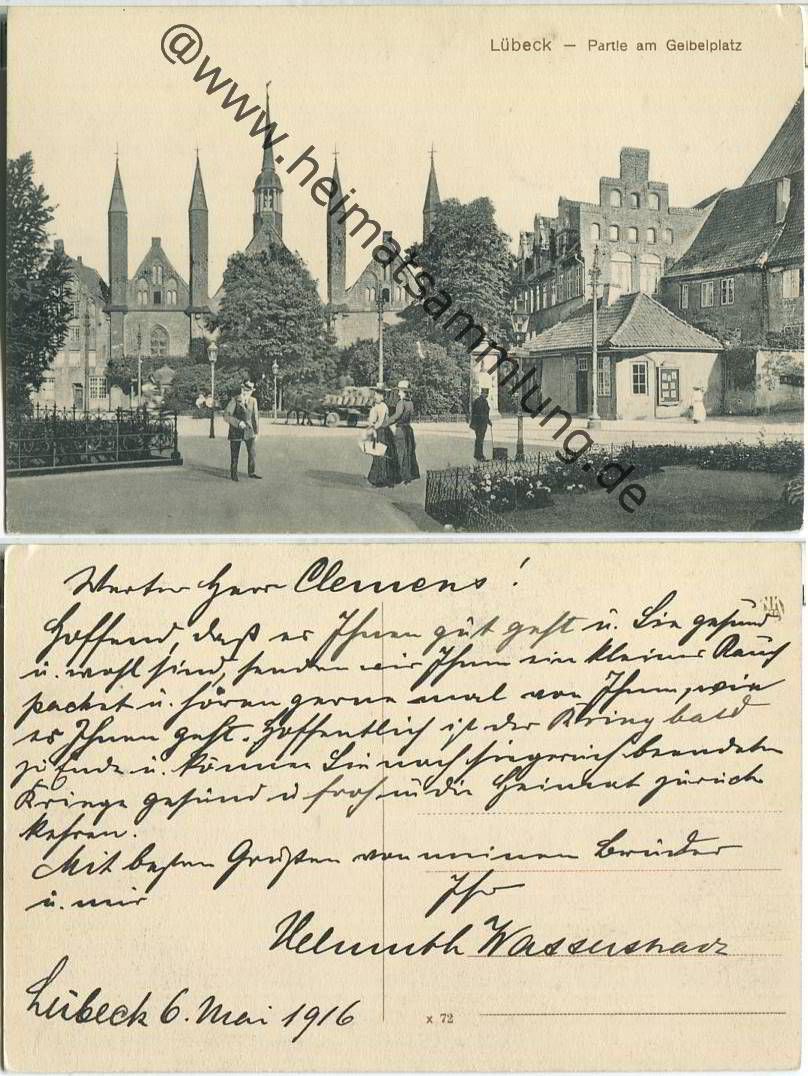 Lübeck – Partie am Geibelplatz
@www.heimatsammlung.de
Werter Herr Clemens!
Hoffend, daß es Ihnen gut geht u. Sie gesund
u. wohl sind, senden wir Ihnen ein kleines Rauch
packet u. hören gerne mal von Ihnen, wie
es Ihnen geht. Hoffentlich ist der Krieg bald
zu Ende u. können Sie nach siegreich beendeten
Kriege gesund u froh in die Heimat zurück
kehren.
Mit besten Grüßen von meinen Brüder
u. mir Ihr
Helmuth
Lübeck 6. Mai 1916
x 72